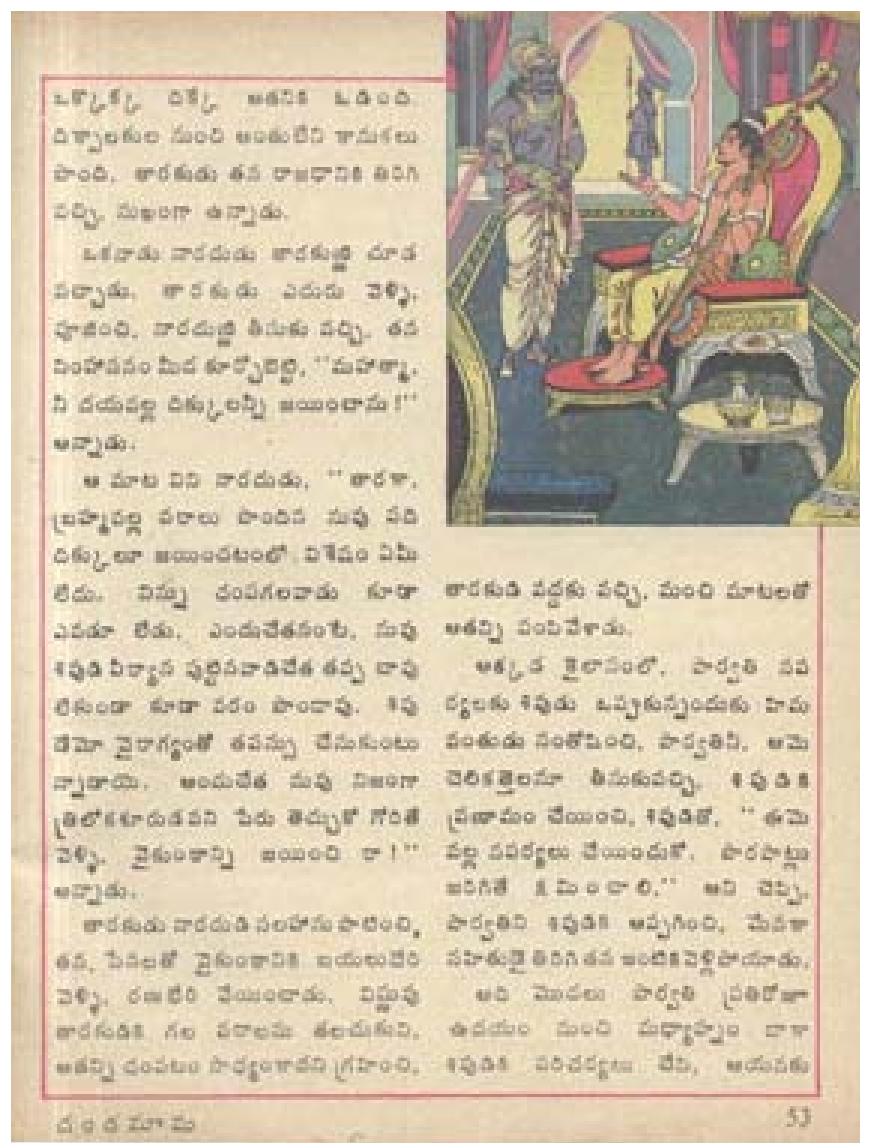 ఒక్కొక్క దిక్కే అతనికి ఓడింది.
దిక్పాలకుల నుంచి అంతులేని కానుకలు
పొంది, తారకుడు తన రాజధానికి తిరిగి
వచ్చి, సుఖంగా ఉన్నాడు.
ఒకనాడు నారదుడు తారకుణ్ణి చూడ
వచ్చాడు. తారకుడు ఎదురు వెళ్ళి,
పూజించి, నారదుణ్ణి తీసుకు వచ్చి, తన
సింహాసనం మీద కూర్చోబెట్టి, "మహాత్మా,
నీ దయవల్ల దిక్కులన్నీ జయించాను!"
అన్నాడు.
ఆ మాట విని నారదుడు, "తారకా,
బ్రహ్మవల్ల వరాలు పొందిన నువు పది
దిక్కులూ జయించటంలో విశేషం ఏమీ
లేదు. నిన్ను చంపగలవాడు కూడా
ఎవడూ లేడు. ఎందుచేతనంటే, నువు
శివుడి వీర్యాన పుట్టినవాడిచేత తప్ప చావు
లేకుండా కూడా వరం పొందావు. శివు
డేమో వైరాగ్యంతో తపస్సు చేసుకుంటు
న్నాడాయె. అందుచేత నువు నిజంగా
త్రిలోకశూరుడవని పేరు తెచ్చుకో గోరితే
వెళ్ళి, వైకుంఠాన్ని జయించి రా!"
అన్నాడు.
తారకుడు నారదుడి సలహాను పాటించి,
తన, సేనలతో వైకుంఠానికి బయలుదేరి
వెళ్ళి, రణభేరి వేయించాడు. విష్ణువు
తారకుడికి గల వరాలను తలచుకుని,
అతన్ని చంపటం సాధ్యంకాదని గ్రహించి,
తారకుడి వద్దకు వచ్చి, మంచి మాటలతో
అతన్ని పంపివేశాడు.
అక్కడ కైలాసంలో, పార్వతి సప
ర్యలకు శివుడు ఒప్పుకున్నందుకు హిమ
వంతుడు సంతోషించి, పార్వతినీ, ఆమె
చెలికత్తెలనూ తీసుకువచ్చి, శివుడికి
ప్రణామం చేయించి, శివుడితో, "ఈమె
వల్ల సపర్యలు చేయించుకో. పొరపాట్లు
జరిగితే క్షమించాలి." అని చెప్పి,
పార్వతిని శివుడికి అప్పగించి, మేనకా
సహితుడై తిరిగి తన ఇంటికి వెళ్లిపోయాడు.
అది మొదలు పార్వతి ప్రతిరోజూ
ఉదయం నుంచి మధ్యాహ్నం దాకా
శివుడికి పరిచర్యలు చేసి, ఆయనకు
చందమామ
53